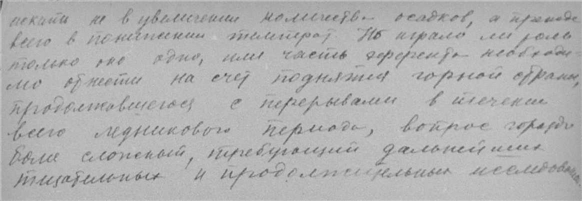 искать не в увеличении количества осадков, а прежде
всего в понижении температ. Но играло ли роль
только оно одно, или часть эффекта необходи-
мо отнести на счет поднятия горной страны,
продолжавшегося с перерывами в течении
всего ледникового периода, вопрос гораздо
более сложный, требующий дальнейших
тщательных и продолжительных исследований